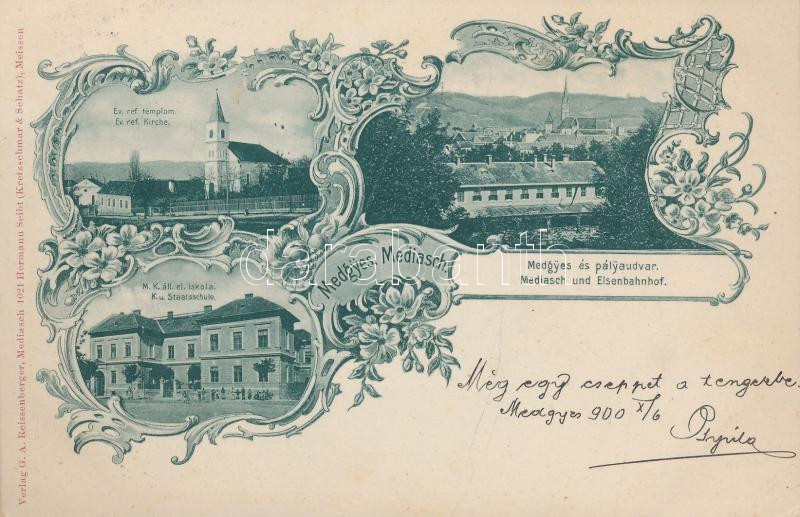 Verlag G. A. Reissenberger, Mediasch 1021 Hermann Seibt (Kretzschmar & Schatz), Meissen
Ev. ref. templom.
Ev. ref. Kirche.
M. K. áll. el. iskola.
K. u. Staatsschule.
Medgyes. Mediasch.
Medgyes és pályaudvar.
Mediasch und Eisenbahnhof.
darabanth
Még egy cseppet a tengerbe.
Medgyes 900 X/6
Gyula